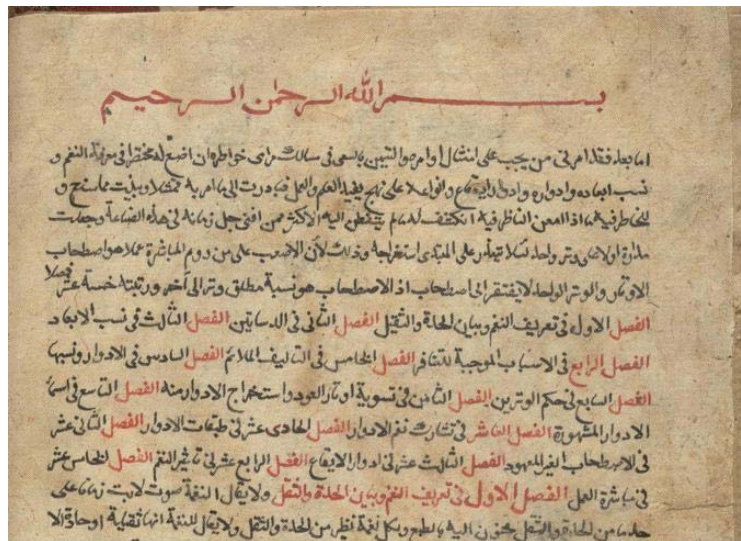 بسم الله الرحمن الرحيم
اما بعد فقد امرني من يجب على امتثال اوامره والتيمن بالسعى في مسالك مراى خواطره ان اضع له مختصرا في معرفة النغم و
نسب ابعاده وادواره وادوار الايقاع وانواعه على نهج يفيد العلم والعمل فبادرت الى ما امر به ممتثلا وبينت مما سنح و
للخاطر فيه ما اذا امعن الناظر فيه انكشف له ما لم يتفطن اليه الاكثر ممن افنى جل زمانه في هذه الصناعة وجعلت
مداره اولا على وتر واحد لئلا يتعذر على المبتدى استخراجه وذلك لأن الاصعب على من دوم المباشرة عملا هو اصطحاب
الاوتار والوتر الواحد لا يفتقر الى اصطحاب اذ الاصطحاب هو نسبة مطلق وتر الى آخر ورتبته خمسة عشر فصلا
الفصل الاول في تعريف النغم وبيان الحدة والثقل الفصل الثاني في الدساتين الفصل الثالث في نسب الابعاد
الفصل الرابع في الاسباب الموجبة للتنافر الفصل الخامس في التاليف الملائم الفصل السادس في الادوار ونسبها
الفصل السابع في حكم الوترين الفصل الثامن في تسوية اوتار العود واستخراج الادوار منه الفصل التاسع في اسماء
الادوار المشهورة الفصل العاشر في تشارك نغم الادوار الفصل الحادى عشر في طبقات الادوار الفصل الثاني عشر
في الاصطحاب الغير المعهود الفصل الثالث عشر في ادوار الايقاع الفصل الرابع عشر في تاثير النغم الفصل الخامس عشر
في مباشرة العمل الفصل الاول في تعريف النغم وبيان الحدة والثقل ولا يقال النغمة صوت لابث زمانا على
حد ما من الحدة والثقل محنون اليه بالطبع ولكل نغمة نظير من الحدة والثقل ولا يقال للنغة انها ثقيلة او حادة الا